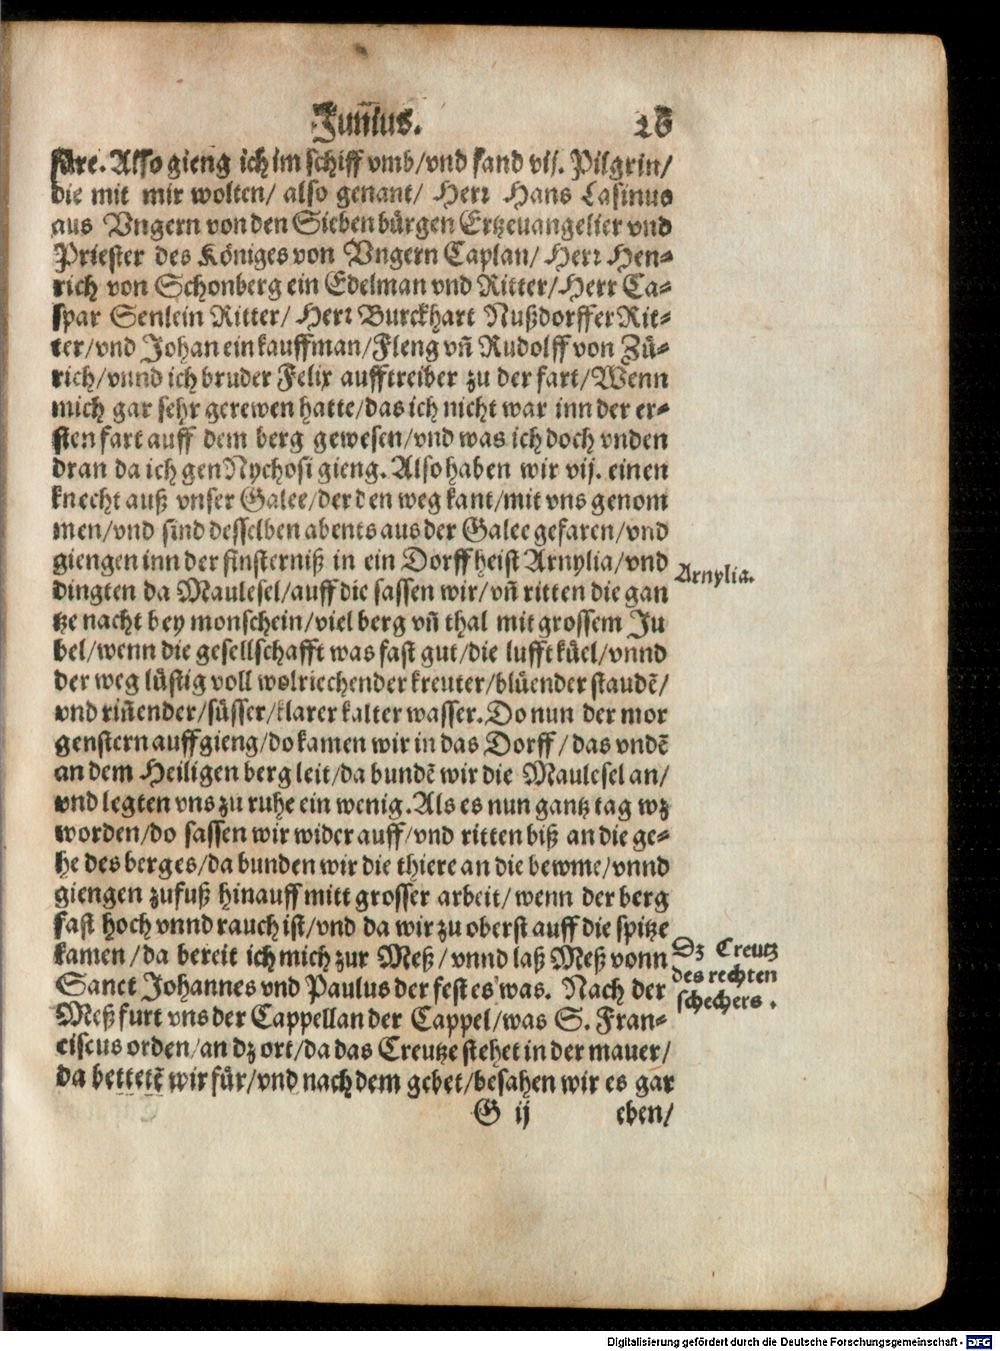 Junius. 26
fare. Also gieng ich im schiff vmb/vnd fand vij. Pilgrin/
die mit mir wolten/ also genant/ Herr Hans Lasinus
aus Vngern von den Siebenbürgen Ertzeuangelier vnd
Priester des Königes von Vngern Caplan/ Herr Hen-
rich von Schonberg ein Edelman vnd Ritter/Herr Ca-
spar Senlein Ritter/ Herr Burckhart Nußdorffer Rit-
ter/vnd Johan ein kauffman/Fleng vñ Rudolff von Zü-
rich/vnnd ich bruder Felix aufftreiber zu der fart/Wenn
mich gar sehr gerewen hatte/das ich nicht war inn der er-
sten fart auff dem berg gewesen/vnd was ich doch vnden
dran da ich gen Nychosi gieng. Also haben wir vij. einen
knecht auß vnser Galee/der den weg kant/mit vns genom
men/vnd sind desselben abents aus der Galee gefaren/vnd
giengen inn der finsterniß in ein Dorff heist Arnylia/vnd
Arnylia.
dingten da Maulesel/auff die sassen wir/vñ ritten die gan
tze nacht bey monschein/viel berg vñ thal mit grossem Ju
bel/wenn die gesellschafft was fast gut/die lufft küel/vnnd
der weg lüstig voll wolriechender kreuter/blüender staudē/
vnd riñender/süsser/klarer kalter wasser. Do nun der mor
genstern auffgieng/do kamen wir in das Dorff/das vndē
an dem Heiligen berg leit/da bundē wir die Maulesel an/
vnd legten vns zu ruhe ein wenig. Als es nun gantz tag wz
worden/do sassen wir wider auff/vnd ritten biß an die ge-
he des berges/da bunden wir die thiere an die bewme/vnnd
giengen zufuß hinauff mitt grosser arbeit/wenn der berg
fast hoch vnnd rauch ist/vnd da wir zu oberst auff die spitze
kamen/da bereit ich mich zur Meß/vnnd laß Meß vonn
Dz Creutz
des rechten
schechers.
Sanct Johannes vnd Paulus der fest es was. Nach der
Meß furt vns der Cappellan der Cappel/was S. Fran-
ciscus orden/an dz ort/da das Creutze stehet in der mauer/
da bettetē wir für/vnd nach dem gebet/besahen wir es gar
G ij eben/
Digitalisierung gefördert durch die Deutsche Forschungsgemeinschaft - DFG